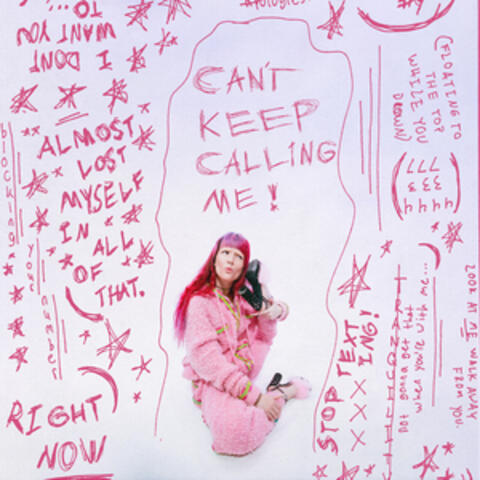 I DONT
WANT YOU
TO...
ALMOST
LOST
MYSELF
IN ALL
OF
THAT.
blocking
your
number
RIGHT
NOW
CAN'T
KEEP
CALLING
ME!
(FLOATING TO
THE TOP
WHILE YOU
DROWN)
STOP TEXT
ING!
XXX
not gonna get that
when you're with me...
LOOK AT ME WALK AWAY
FROM YOU.